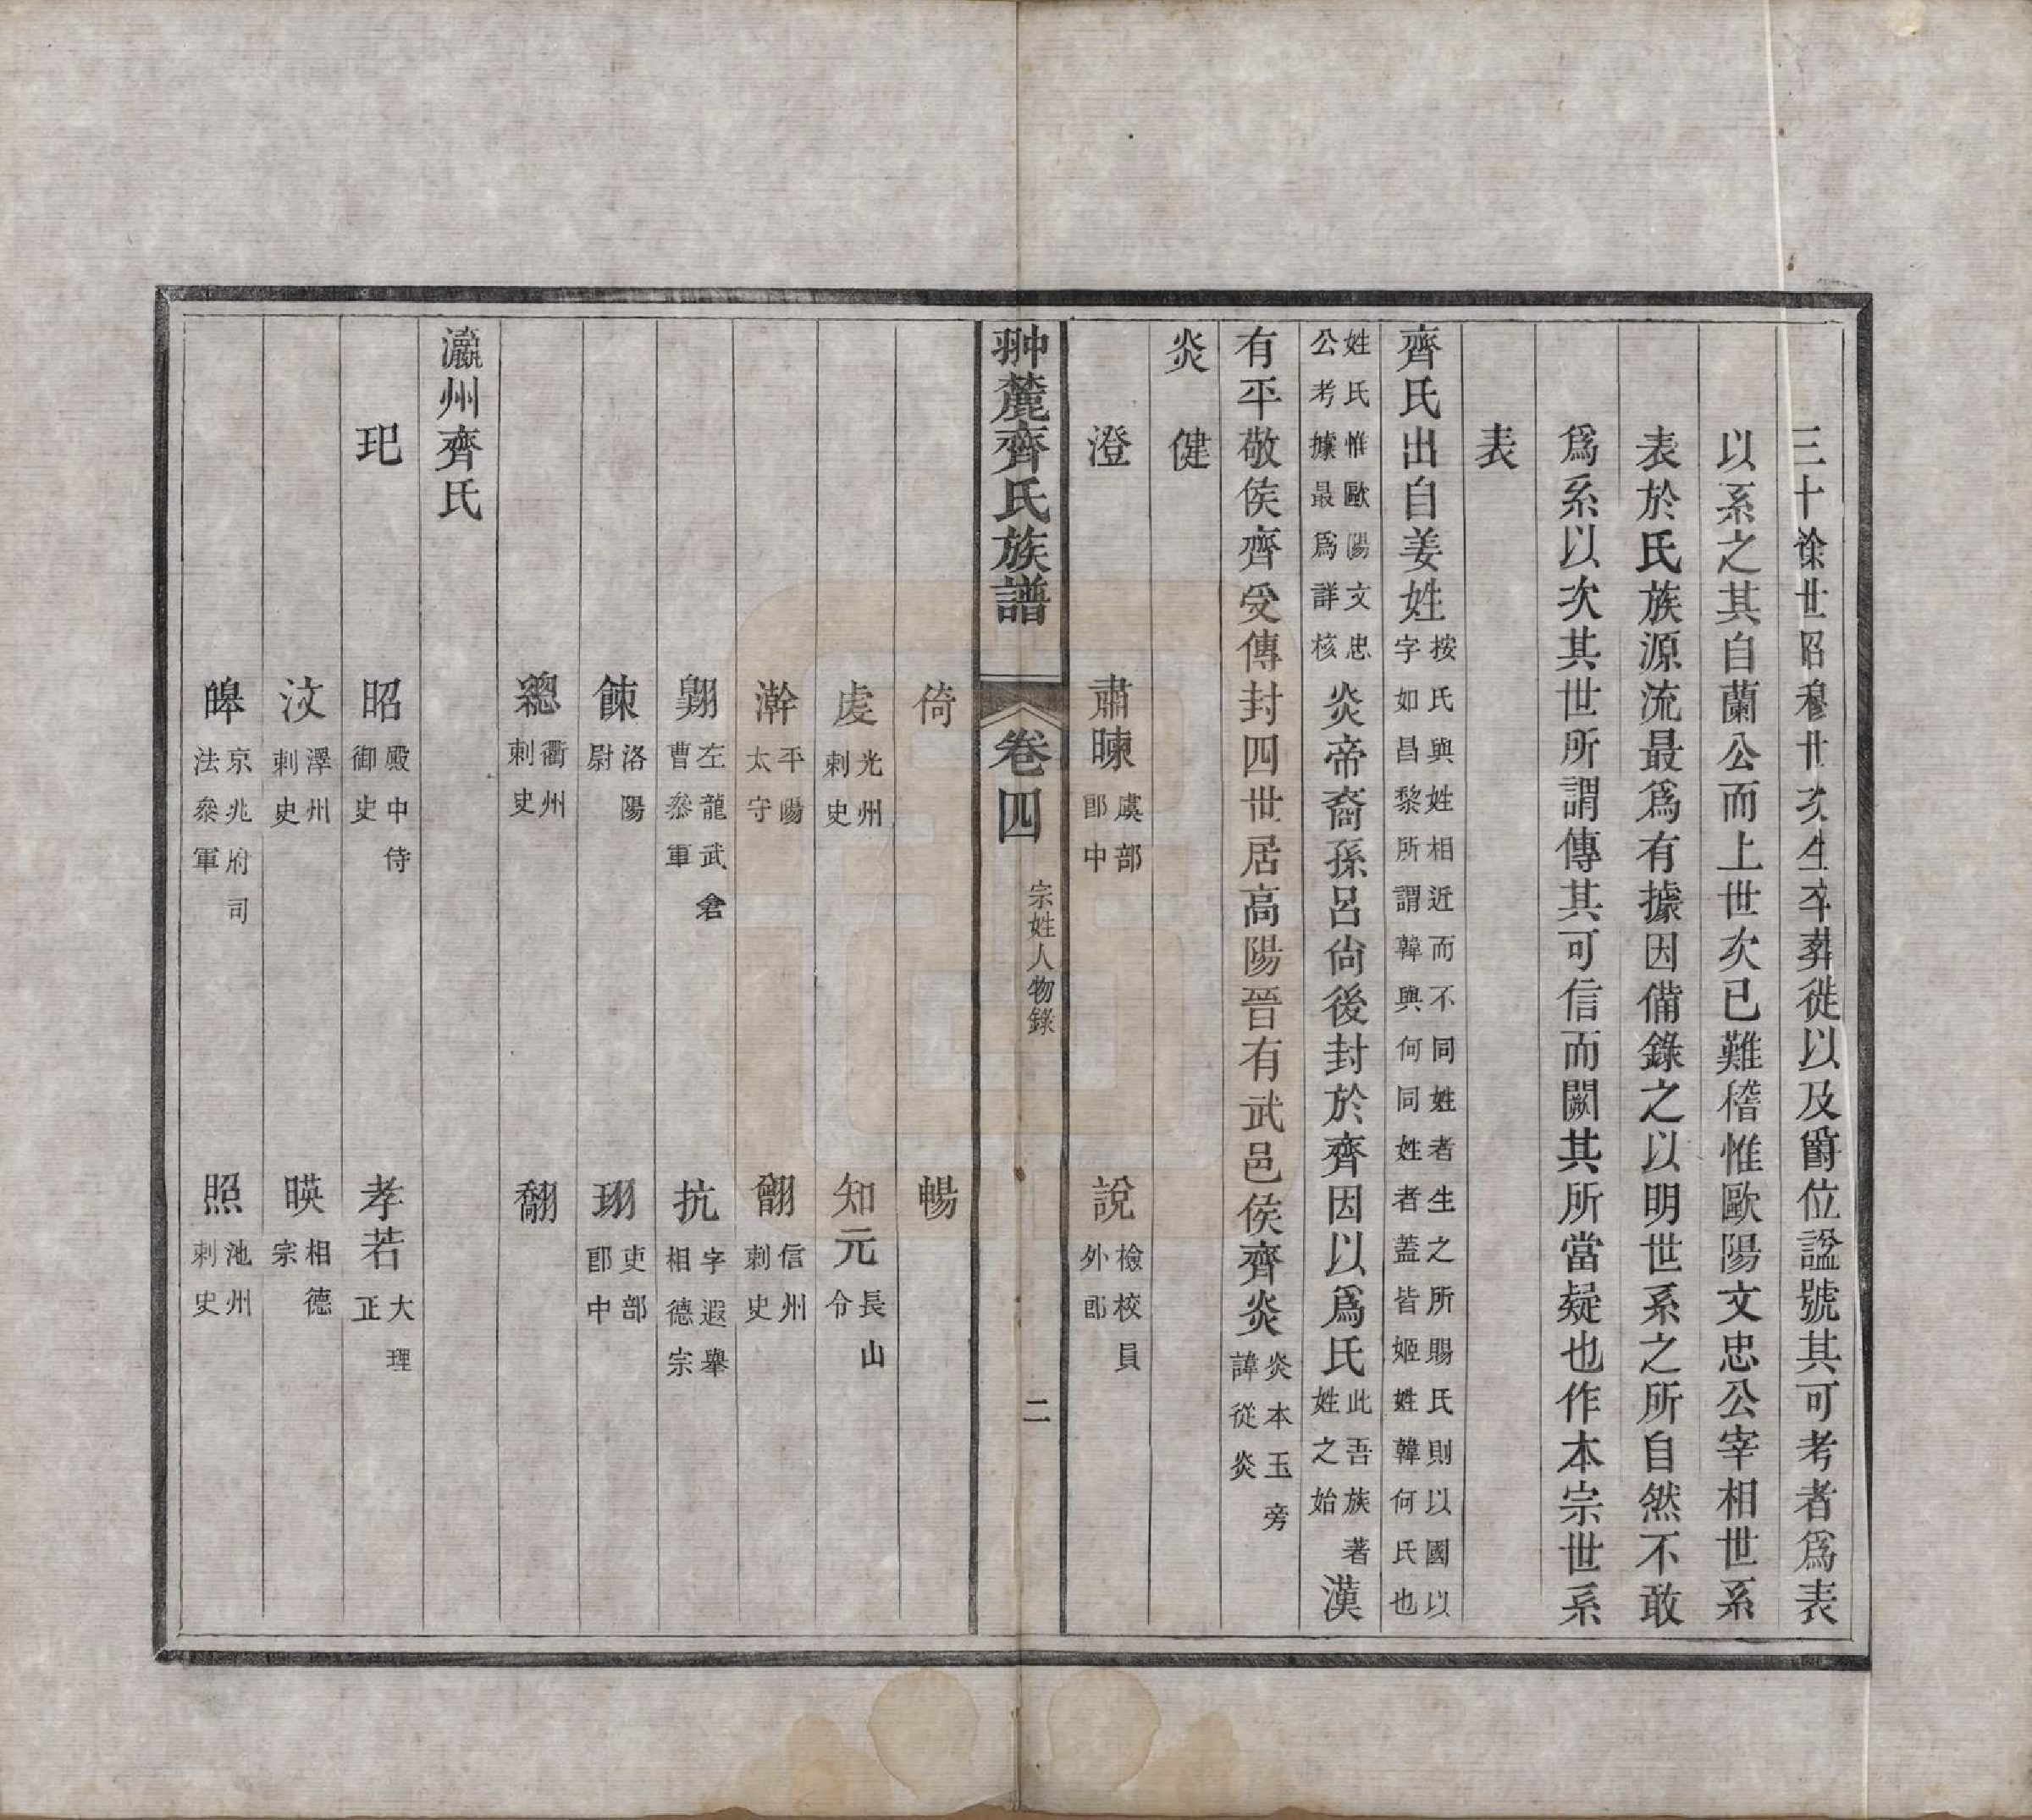 三十餘世昭穆世次生卒葬徙以及爵位諡號其可考者爲表
以系之其自蘭公而上世次已難稽惟歐陽文忠公宰相世系
表於氏族源流最爲有據因備錄之以明世系之所自然不敢
爲系以次其世所謂傳其可信而闕其所當疑也作本宗世系
表
齊氏出自姜姓按氏與姓相近而不同姓者生之所賜氏則以國以
字如昌黎所謂韓與何同姓者蓋皆姬姓韓何氏也
姓氏惟歐陽文忠
公考據最爲詳核
炎帝裔孫呂尙後封於齊因以爲氏此吾族著
姓之始
漢
有平敬侯齊受傳封四世居高陽晉有武邑侯齊炎炎本玉旁
諱從炎
炎 健
澄 肅 說檢校員
外郎
暕虞部
郎中
翀麓齊氏族譜 卷四 宗姓人物錄 二
倚 暢
虔光州
刺史 知元長山
令
澣平陽
太守 翻信州
刺史
翺左龍武倉
曹叅軍 抗字遐舉
相德宗
餗洛陽
尉 翊吏部
郎中
總衢州
刺史 翻
瀛州齊氏
玘 昭殿中侍
御史 孝若大理
正
汶澤州
刺史 暎相德
宗
皞京兆府司
法叅軍 照池州
刺史